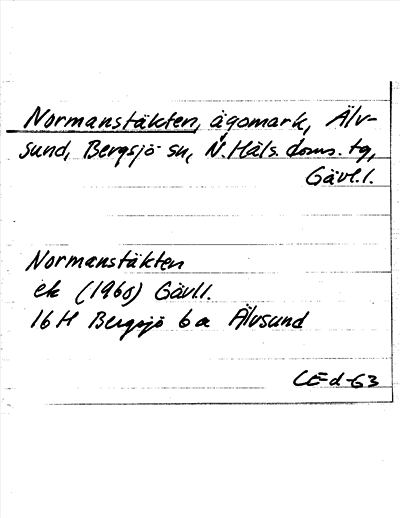 Normanstäkten, ägomark, Älv-
sund, Bergsjö sn, N. Häls. doms. tg,
Gävl. l.
Normanstäkten
ek (1960) Gävl. l.
16 H Bergsjö 6 a Älvsund
CEd-63